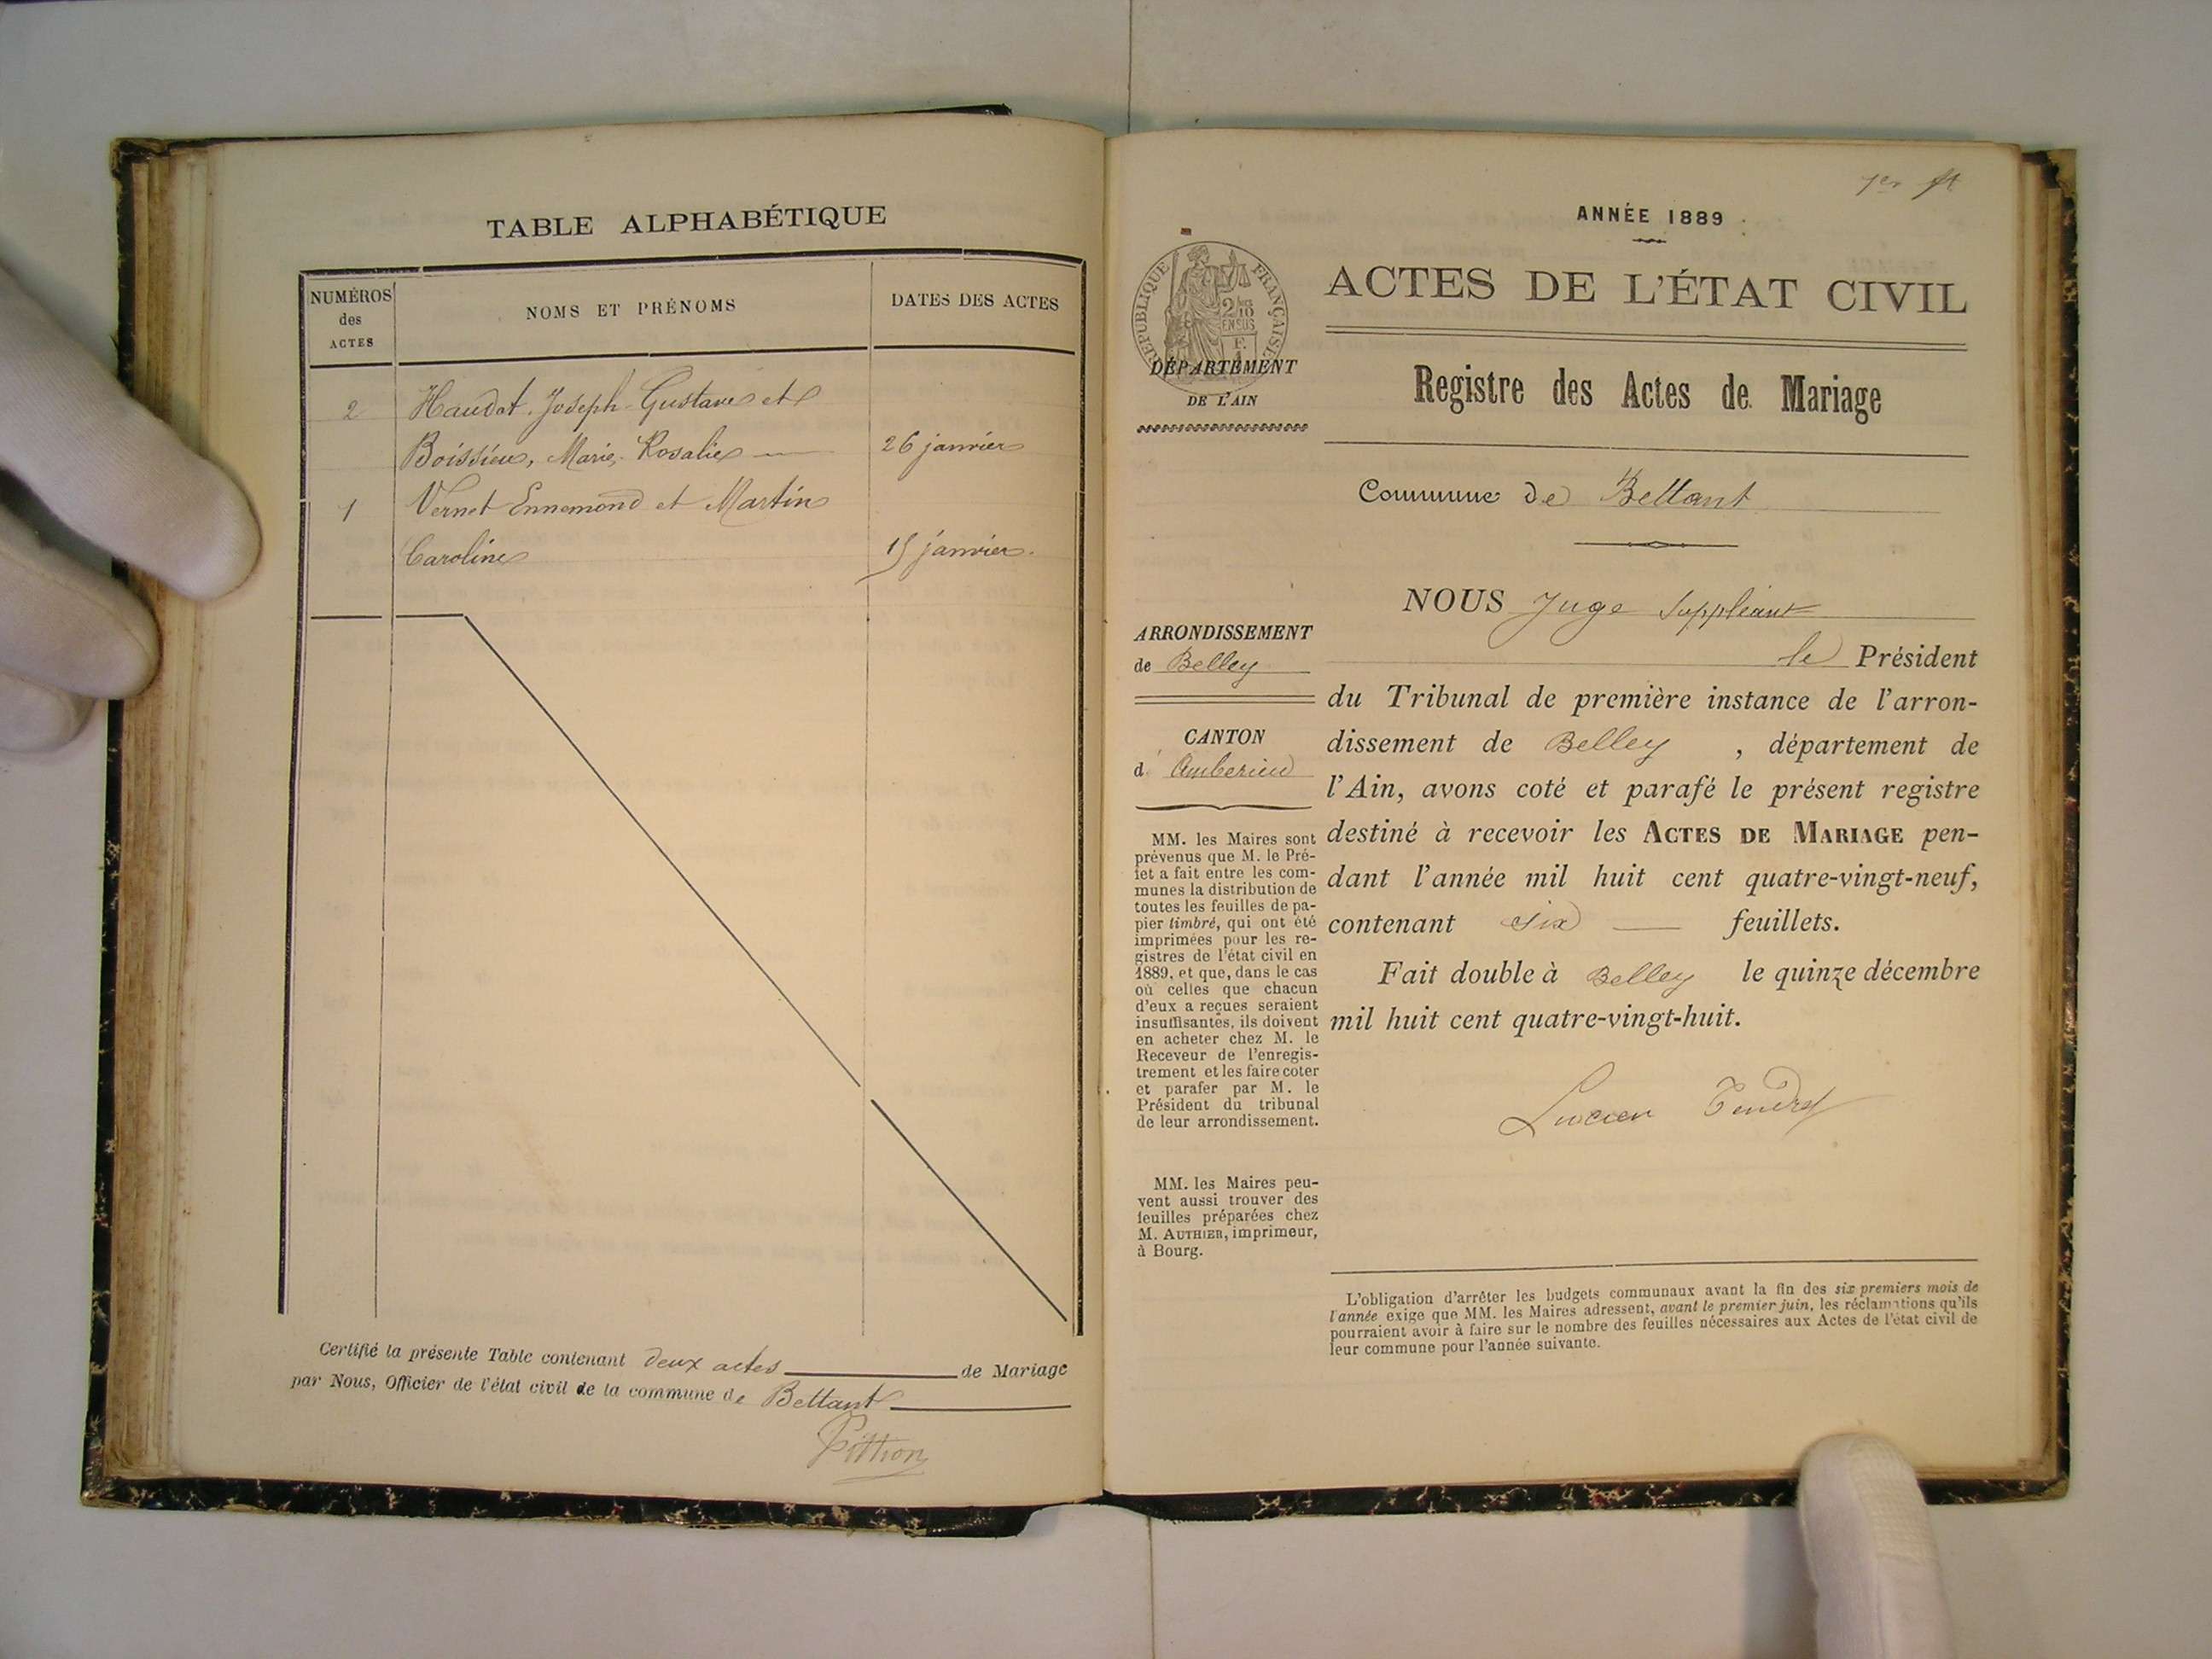 TABLE ALPHABÉTIQUE
NUMÉROS
des
ACTES
NOMS ET PRÉNOMS
DATES DES ACTES
2 Haudat, Joseph Gustave et
Boissieu, Marie, Rosalie 26 janvier
1 Vernet Ennemond et Martin
Caroline 15 janvier.
Certifié la présente Table contenant deux actes de Mariage
par Nous, Officier de l'état civil de la commune de Bettant
Pithion
1er ft
ANNÉE 1889
RÉPUBLIQUE FRANÇAISE
DÉPARTEMENT
DE L'AIN
ACTES DE L'ÉTAT CIVIL
Registre des Actes de Mariage
Commune de Bettant
ARRONDISSEMENT
de Belley
CANTON
d' Ambérieu
MM. les Maires sont
prévenus que M. le Pré-
fet a fait entre les com-
munes la distribution de
toutes les feuilles de pa-
pier timbré, qui ont été
imprimées pour les re-
gistres de l'état civil en
1889, et que, dans le cas
où celles que chacun
d'eux a reçues seraient
insuffisantes, ils doivent
en acheter chez M. le
Receveur de l'enregis-
trement et les faire coter
et parafer par M. le
Président du tribunal
de leur arrondissement.
MM. les Maires peu-
vent aussi trouver des
feuilles préparées chez
M. AUTHIER, imprimeur,
à Bourg.
NOUS Juge suppléant
le Président
du Tribunal de première instance de l'arron-
dissement de Belley , département de
l'Ain, avons coté et parafé le présent registre
destiné à recevoir les ACTES DE MARIAGE pen-
dant l'année mil huit cent quatre-vingt-neuf,
contenant six feuillets.
Fait double à Belley le quinze décembre
mil huit cent quatre-vingt-huit.
Lucien Tendret
L'obligation d'arrêter les budgets communaux avant la fin des six premiers mois de
l'année exige que MM. les Maires adressent, avant le premier juin, les réclamations qu'ils
pourraient avoir à faire sur le nombre des feuilles nécessaires aux Actes de l'état civil de
leur commune pour l'année suivante.